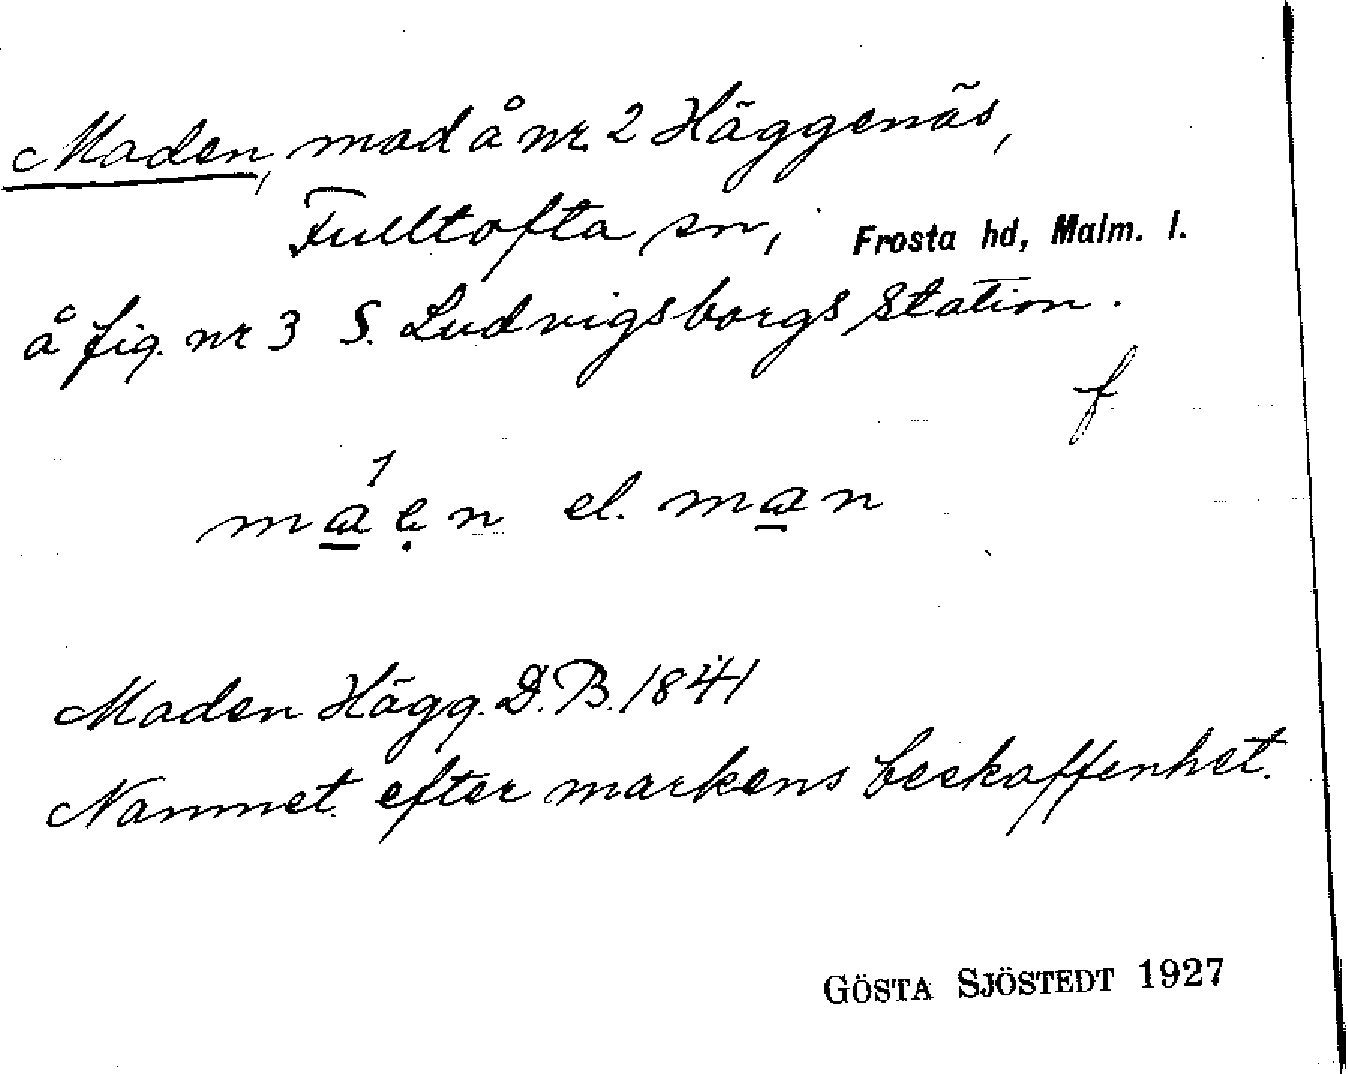 Maden, mad å nr 2 Häggenäs,
Fulltofta sn, Frosta hd, Malm. l.
å fig. nr 3 S. Ludvigsborgs station.
f
ma̲´ẹn el. ma̲n
Maden Hägg. D.B. 1841
Namnet efter markens beskaffenhet.
GÖSTA SJÖSTEDT 1927